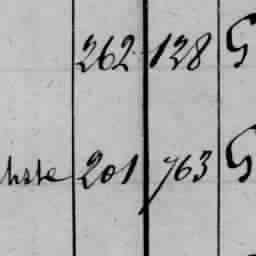 262 128 G
hste 201 763 G